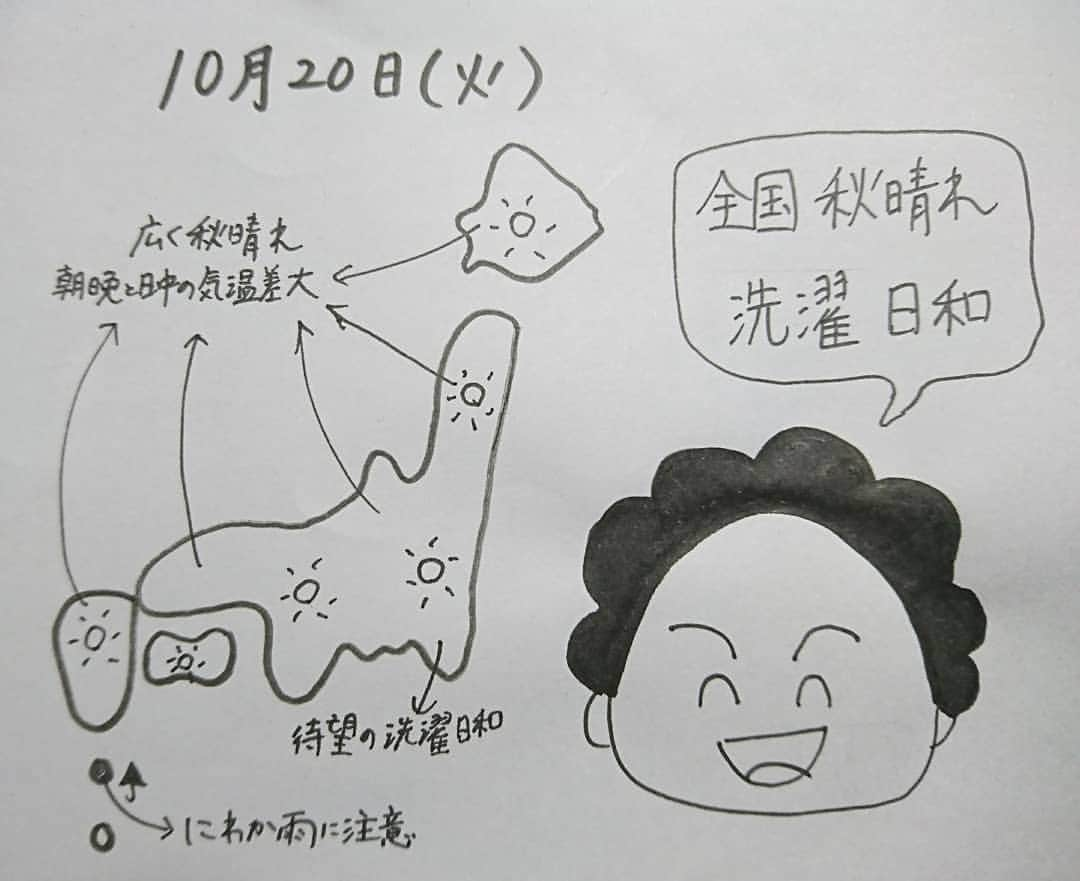 10月20日(火)
広く秋晴れ
朝晩と日中の気温差大
全国 秋晴れ
洗濯 日和
待望の洗濯日和
にわか雨に注意